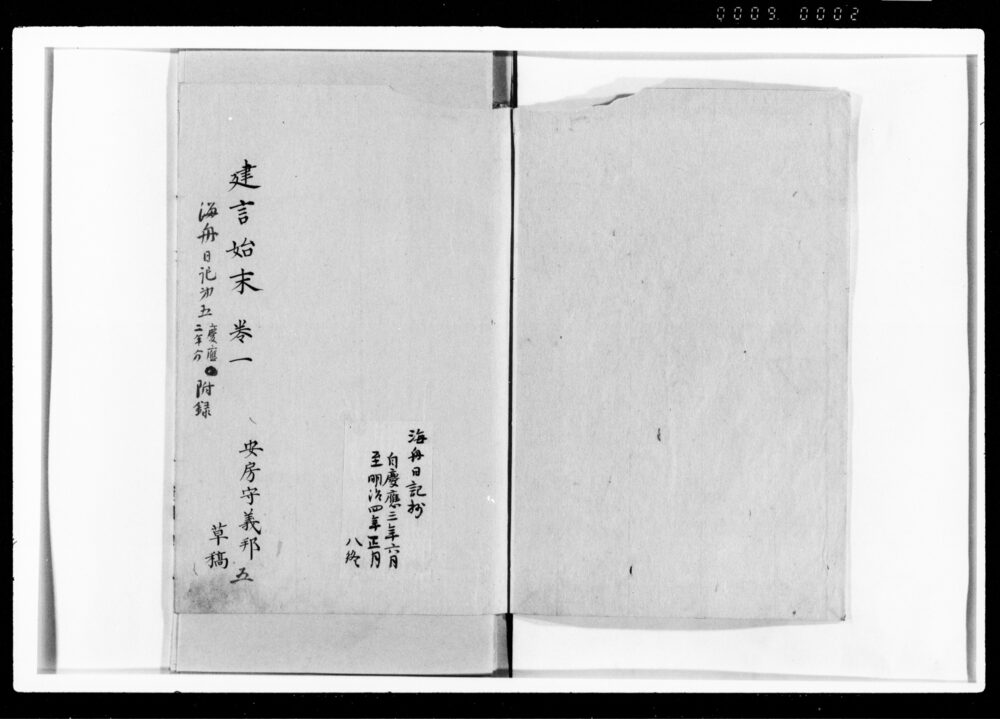 0009 0002
海舟日記抄
自慶應三年六月
至明治四年正月
八終
建言始末 巻一
安房守義邦 五
草稿
海舟日記 五 慶應二年分 附録